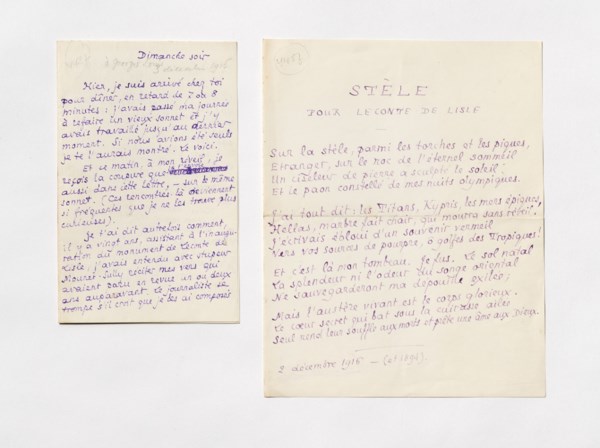 Dimanche soir
Hier, je suis arrivé chez toi
pour dîner, en retard de 7 ou 8
minutes : j'avais passé ma journée
à refaire un vieux sonnet et j'y
avais travaillé jusqu'au dernier
moment. Si nous avions été seuls
je te l'aurais montré. Le voici.
Et ce matin, à mon réveil, je
reçois la coupure que
aussi dans cette lettre, – sur le même
sonnet. (Ces rencontres-là deviennent
si fréquentes que je ne les trouve plus
curieuses).
Je t'ai dit autrefois comment,
il y a vingt ans, assistant à l'inaugu-
ration du monument de Leconte de
Lisle, j'avais entendu avec stupeur
Mounet-Sully réciter mes vers qui
avaient paru en revue un ou deux
ans auparavant. Le journaliste se
trompe s'il croit que je les ai composés
STÈLE
POUR LECONTE DE LISLE
Sur la stèle, parmi les torches et les piques,
Etranger, sur le roc de l'éternel sommeil
Un ciseleur de pierre a sculpté le soleil
Et le paon constellé de mes nuits olympiques.
J'ai tout dit : les Titans, Kypris, les mers épiques,
Hellas, marbre fait chair, qui mourra sans réveil.
J'écrivais ébloui d'un souvenir vermeil
Vers vos sources de pourpre, ô golfes des Tropiques !
Et c'est là mon tombeau. Je fus. Le sol natal
La splendeur ni l'odeur du songe oriental
Ne sauvegarderont ma dépouille exilée ;
Mais l'austère vivant est le corps glorieux.
Le cœur secret qui bat sous la cuirasse ailée
Seul rend leur souffle aux morts et prête une âme aux Dieux.
2 décembre 1916 – (et 1891).